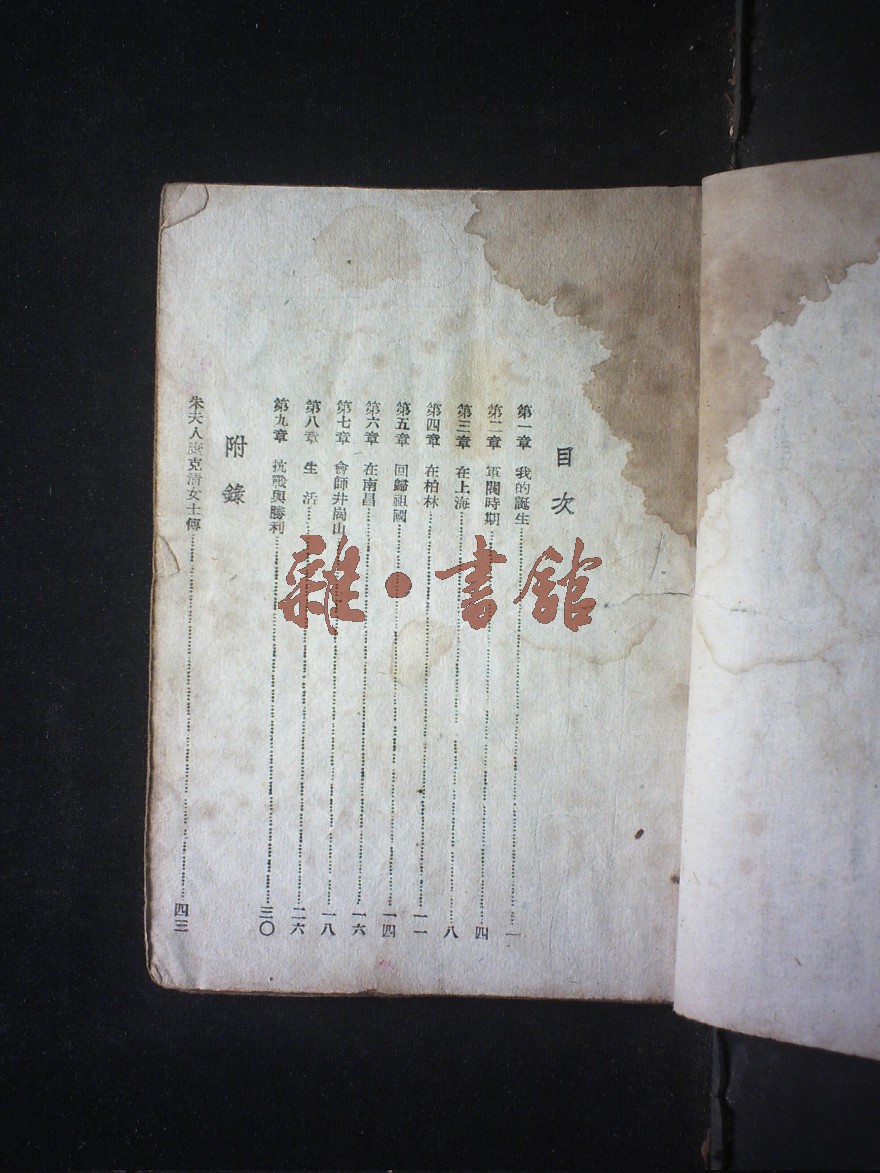 目次
第一章 我的誕生 一
第二章 軍閥時期 四
第三章 在上海 八
第四章 在柏林 一一
第五章 回歸祖國 一四
第六章 在南昌 一六
第七章 會師井崗山 一八
第八章 生活 二六
第九章 抗戰與勝利 三〇
附錄
朱夫人康克清女士傳 四三
雜·書館